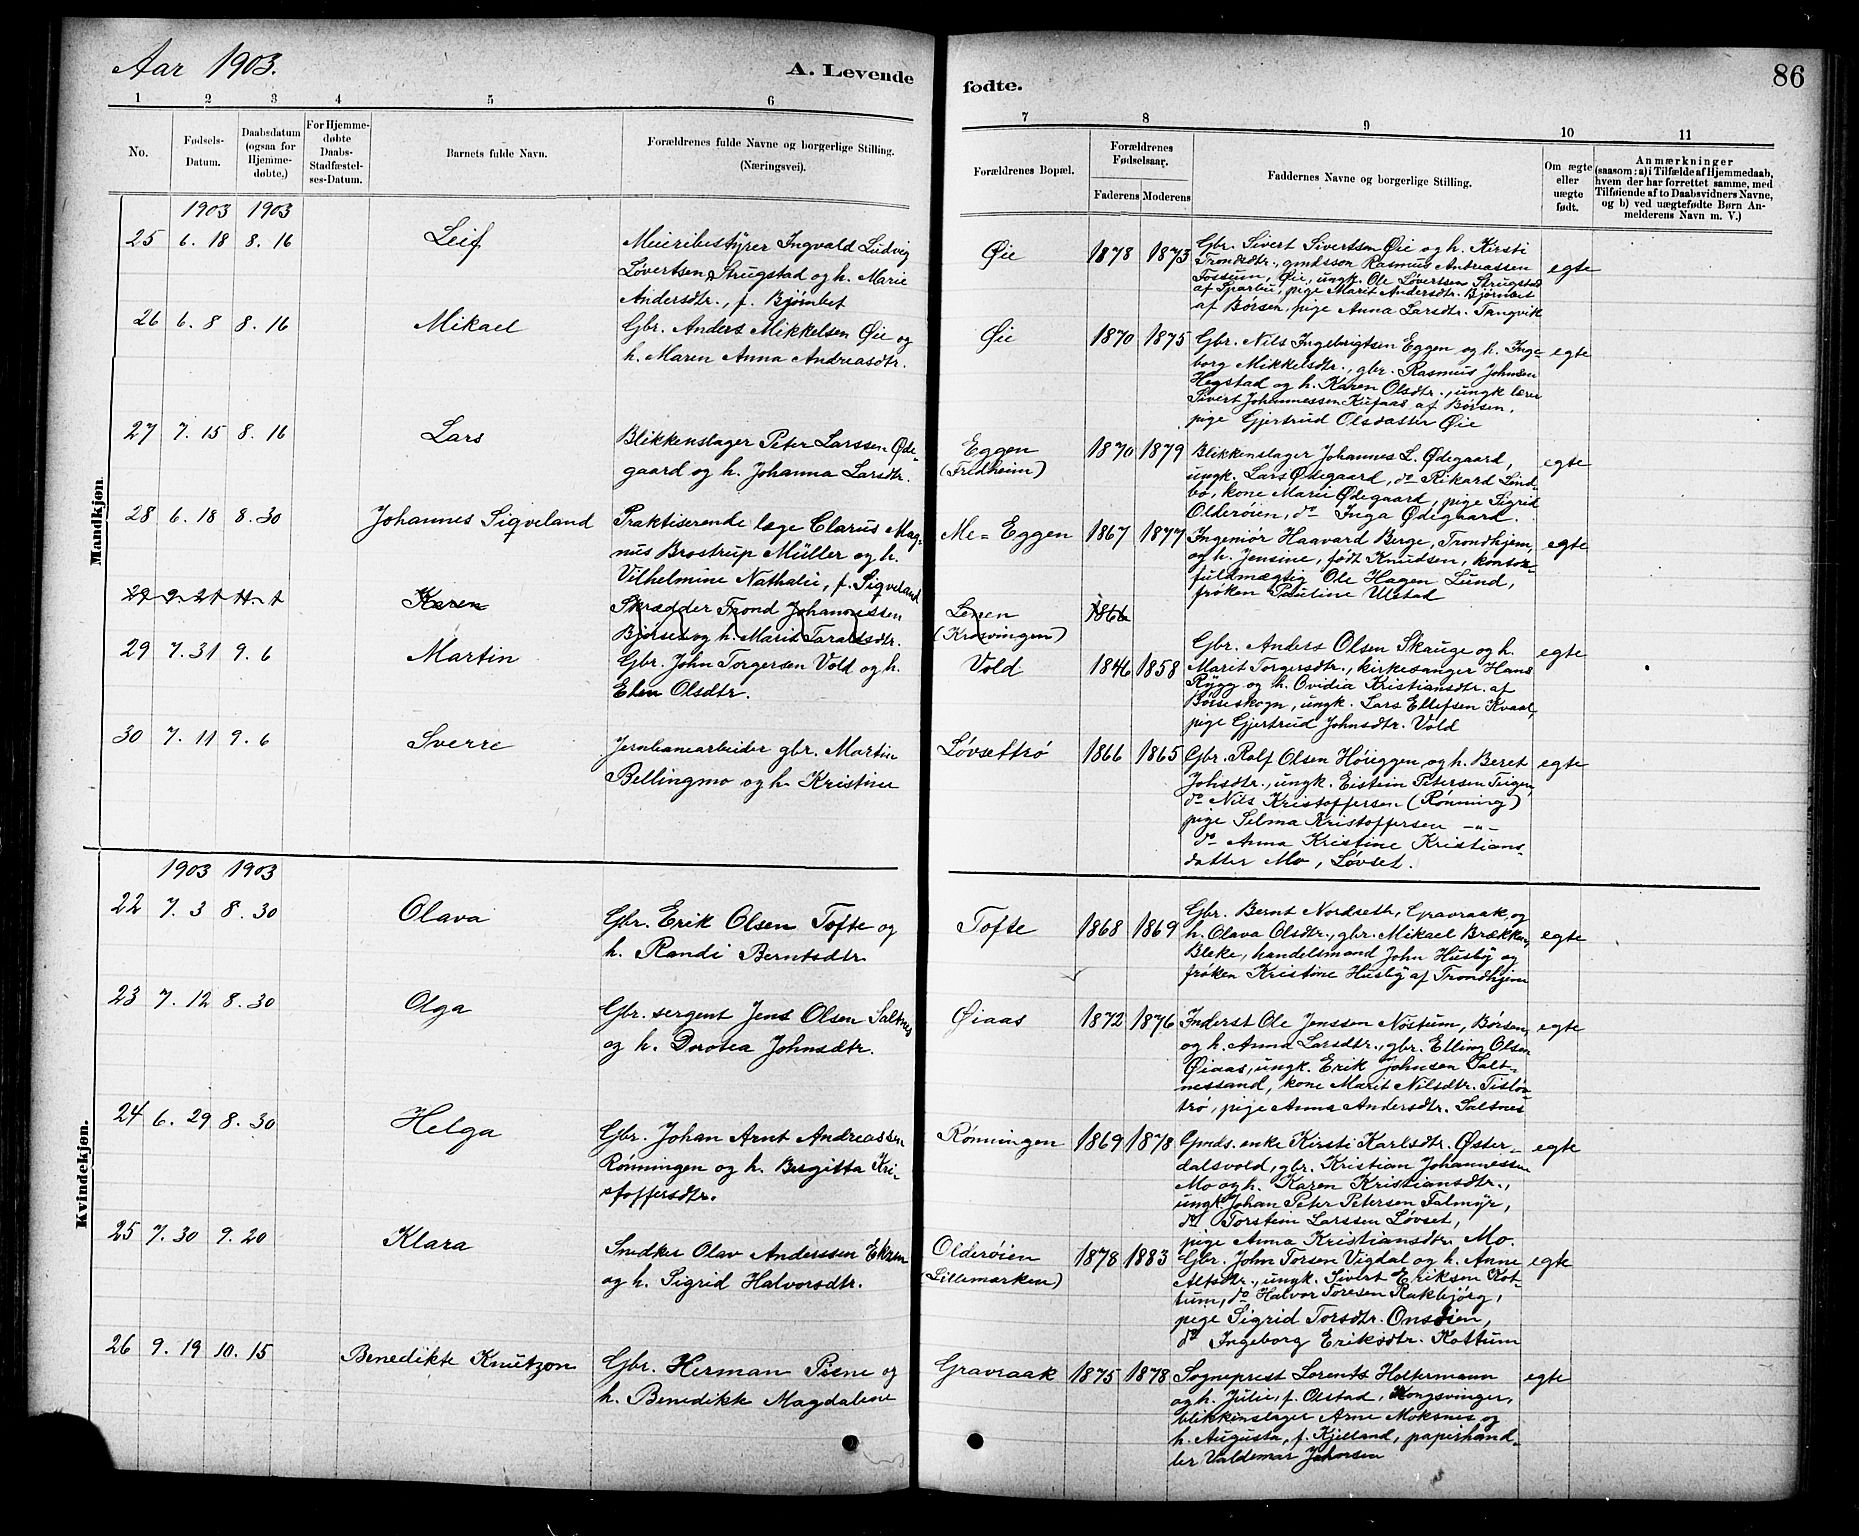 Aar 1903.
A. Levende
fødte.
86
1 2 3 4 5 6
7 8 9 10 11
No.
Fødsels-
Datum.
Daabsdatum
(ogsaa for
Hjemme-
døbte.)
For Hjemme-
døbte
Daabs-
Stadfæstel-
ses-Datum.
Barnets fulde Navn.
Forældrenes fulde Navne og borgerlige Stilling.
(Næringsvei).
Forældrenes Bopæl.
Forældrenes
Fødselsaar.
Faderens Moderens
Faddernes Navne og borgerlige Stilling.
Om ægte
eller
uægte
født.
Anmærkninger
(saasom: a) i Tilfælde af Hjemmedaab,
hvem der har forrettet samme, med
Tilføiende af to Daabsvidners Navne,
og b) ved uægtefødte Børn An-
melderens Navn m. V.)
Mandkjøn.
1903 1903
25 6. 18 8. 16 Leif
Meieribestyrer Ingvald Ludvig
Løvertsen Strugstad og h. Marie
Andersdtr., f. Bjørnbet
Øie 1878 1873
Gbr. Sivert Sivertsen Øie og h. Kirsti
Trondsdtr., gmdsson Rasmus Andreassen
Fossum, Øie, ungk. Ole Løvertsen Strugstad
af Sparbu, pige Marit Andersdtr. Bjørnbet
af Børsen, pige Anna Larsdtr. Tangvik
egte
26 6. 8 8. 16 Mikael
Gbr. Anders Mikkelsen Øie og
h. Maren Anna Andreasdtr.
Øie 1870 1875
Gbr. Nils Ingebrigtsen Eggen og h. Inge-
borg Mikkelsdtr., gbr. Rasmus Johnsen
Hegstad og h. Karen Olsdtr., ungk lærer
Sivert Johannessen Kufaas af Børsen,
pige Gjertrud Olsdatter Øie
egte
27 7. 15 8. 16 Lars
Blikkenslager Peter Larssen Øde-
gaard og h. Johanna Larsdtr.
Eggen
(Fredheim)
1870 1879
Blikkenslager Johannes L. Ødegaard,
ungk. Lars Ødegaard, do Rikard Lind-
bo, kone Marie Ødegaard, pige Sigrid
Olderøien, do Inga Ødegaard.
egte
28 6. 18 8. 30 Johannes Sigveland
Praktiserende læge Clarus Mag-
nus Brostrup Müller og h.
Vilhelmine Nathalie, f. Sigveland
Me= Eggen 1867 1877
Ingeniør Haavard Berge, Trondhjem,
og h. Jensine, født Knudsen, kontor-
fuldmægtig Ole Hagen Lund,
frøken Pauline Ulstad
egte
29 9. 21 11. 1 Karen
Skrædder Trond Johannessen
Bjørset og h. Marit Taraldsdtr.
Lenen
(Krosvingen)
1866
29 7. 31 9. 6 Martin
Gbr. John Torgersen Vold og h.
Elen Olsdtr.
Vold 1846 1858
Gbr. Anders Olsen Skauge og h.
Marit Torgersdtr., kirkesanger Hans
Rygg og h. Ovidia Kristiansdtr. af
Børseskogn, ungk. Lars Ellefsen Kvaal,
pige Gjertrud Johnsdtr. Vold
egte
30 7. 11 9. 6 Sverre
Jernbanearbeider gbr. Martin
Bellingmo og h. Kristine
Løvsettrø 1866 1865
Gbr. Rolf Olsen Høiggen og h. Beret
Johsdtr., ungk. Eistein Petersen Teigen,
do Nils Kristoffersen (Rønning)
pige Selma Kristoffersen -"-
do Anna Kristine Kristians-
datter Mo, Løvset.
egte
Kvindekjøn.
1903 1903
22 7. 3 8. 30 Olava
Gbr. Erik Olsen Tofte og
h. Randi Berntsdtr
Tofte 1868 1869
Gbr. Bernt Nordseth, Gravraak, og
h. Olava Olsdtr., gbr. Mikael Brækken,
Bleke, handelsmand John Husby og
frøken Kristine Husby af Trondhjem
egte
23 7. 12 8. 30 Olga
Gbr. sergent Jens Olsen Saltnes
og h. Dorotea Johnsdtr.
Øiaas 1872 1876
Inderst Ole Jenssen Nostum, Børsen,
og h. Anna Larsdtr., gbr. Elling Olsen
Øiaas, ungk. Erik Johnsen Salt-
nessand, kone Marit Nilsdtr. Tislø-
trø, pige Anna Andersdtr. Saltnes
egte
24 6. 29 8. 30 Helga
Gbr. Johan Arnt Andreassen
Rønningen og h. Bergitta Kri-
stoffersdtr.
Rønningen 1869 1878
Gmds. enke Kirsti Karlsdtr. Øster-
dalsvold, gbr. Kristian Johannessen
Mo og h. Karen Kristiansdtr.,
ungk Johan Peter Petersen Falmyr,
do Torstein Larssen Løvset,
pige Anna Kristiansdtr. Mo.
egte
25 7. 30 9. 20 Klara
Snedker Olav Anderssen Ekren
og h. Sigrid Halvorsdtr.
Olderøien
(Lillemarken)
1878 1883
Gbr. John Torsen Vigdal og h. Anne
Alfsdtr., ungk. Sivert Eriksen Kot-
tum, do Halvor Toresen Rakbjørg,
pige Sigrid Torsdtr. Onsøien,
do Ingeborg Eriksdtr. Kottum
egte
26 9. 19 10. 15 Benedikte Knutzon
Gbr. Herman Piene og
h. Benedikte Magdalene
Gravraak 1875 1878
Sogneprest Lorents Holtermann
og h. Julie, f. Olstad, Kongsvinger,
blikkenslager Arne Moksnes og
h. Augusta, f. Kjelland, papirhand-
ler Valdemar Johnsen
egte